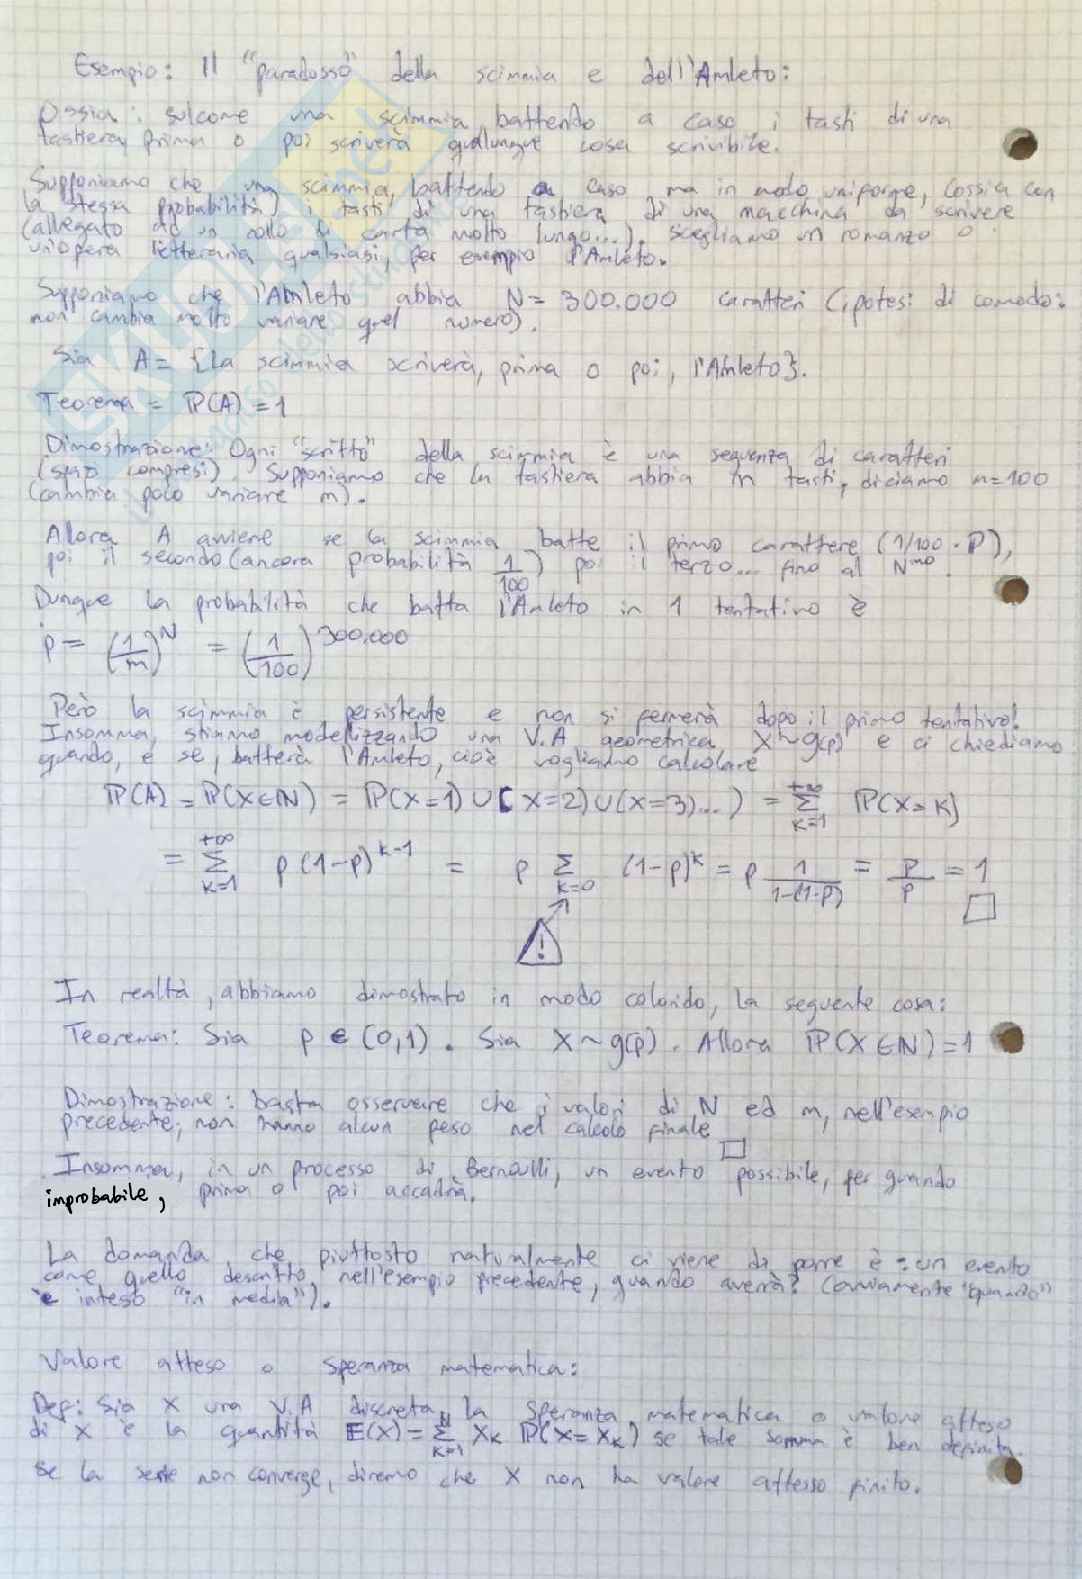 Esempio: Il "paradosso" della scimmia e dell'Amleto:
Ossia: siccome una scimmia, battendo a caso i tasti di una
tastiera, prima o poi scriverà qualunque cosa scrivibile.
Supponiamo che una scimmia, battendo a caso ma in modo uniforme, (ossia con
la stessa probabilità) i tasti di una tastiera di una macchina da scrivere
(allegato ad un rollo di carta molto lungo...). Scegliamo un romanzo o
un'opera letteraria qualsiasi, per esempio l'Amleto.
Supponiamo che l'Amleto abbia N = 300.000 caratteri (ipotesi di comodo:
non cambia molto variare quel numero).
Sia A = {La scimmia scriverà, prima o poi, l'Amleto}.
Teorema = ℙ(A) = 1
Dimostrazione: Ogni "scritto" della scimmia è una sequenza di caratteri
(spazi compresi). Supponiamo che la tastiera abbia m tasti, diciamo m=100
(cambia poco variare m).
Allora A avviene se la scimmia batte il primo carattere (1/100 · P),
poi il secondo (ancora probabilità 1/100) poi il terzo... fino al N^mo.
Dunque la probabilità che batta l'Amleto in 1 tentativo è
p = (1/m)^N = (1/100)^300.000
Però la scimmia è persistente e non si fermerà dopo il primo tentativo!
Insomma, stiamo modellizzando una V.A geometrica, X~g(p) e ci chiediamo
quando, e se, batterà l'Amleto, cioè vogliamo calcolare
ℙ(A) = ℙ(X∈ℕ) = ℙ(X=1) ∪ (X=2) ∪ (X=3)...) = Σ_{k=1}^{+∞} ℙ(X=k)
= Σ_{k=1}^{+∞} p(1-p)^{k-1} = p Σ_{k=0} (1-p)^k = p 1/(1-(1-p)) = p/p = 1 □
!
In realtà, abbiamo dimostrato in modo colorido, la seguente cosa:
Teorema: Sia p ∈ (0,1). Sia X~g(p). Allora ℙ(X∈ℕ)=1
Dimostrazione: basta osservare che i valori di N ed m, nell'esempio
precedente, non hanno alcun peso nel calcolo finale □
Insomma, in un processo di Bernoulli, un evento possibile, per quando
improbabile, prima o poi accadrà.
La domanda che piuttosto naturalmente ci viene da porre è: un evento
come quello descritto nell'esempio precedente, quando averrà? (ovviamente "quando"
è inteso "in media").
Valore atteso o speranza matematica:
Def: Sia X una V.A discreta, la speranza matematica o valore atteso
di X è la quantità E(X) = Σ_{k=1}^{N} x_k ℙ(X=x_k) se tale somma è ben definita.
Se la serie non converge, diremo che X non ha valore attesso finito.